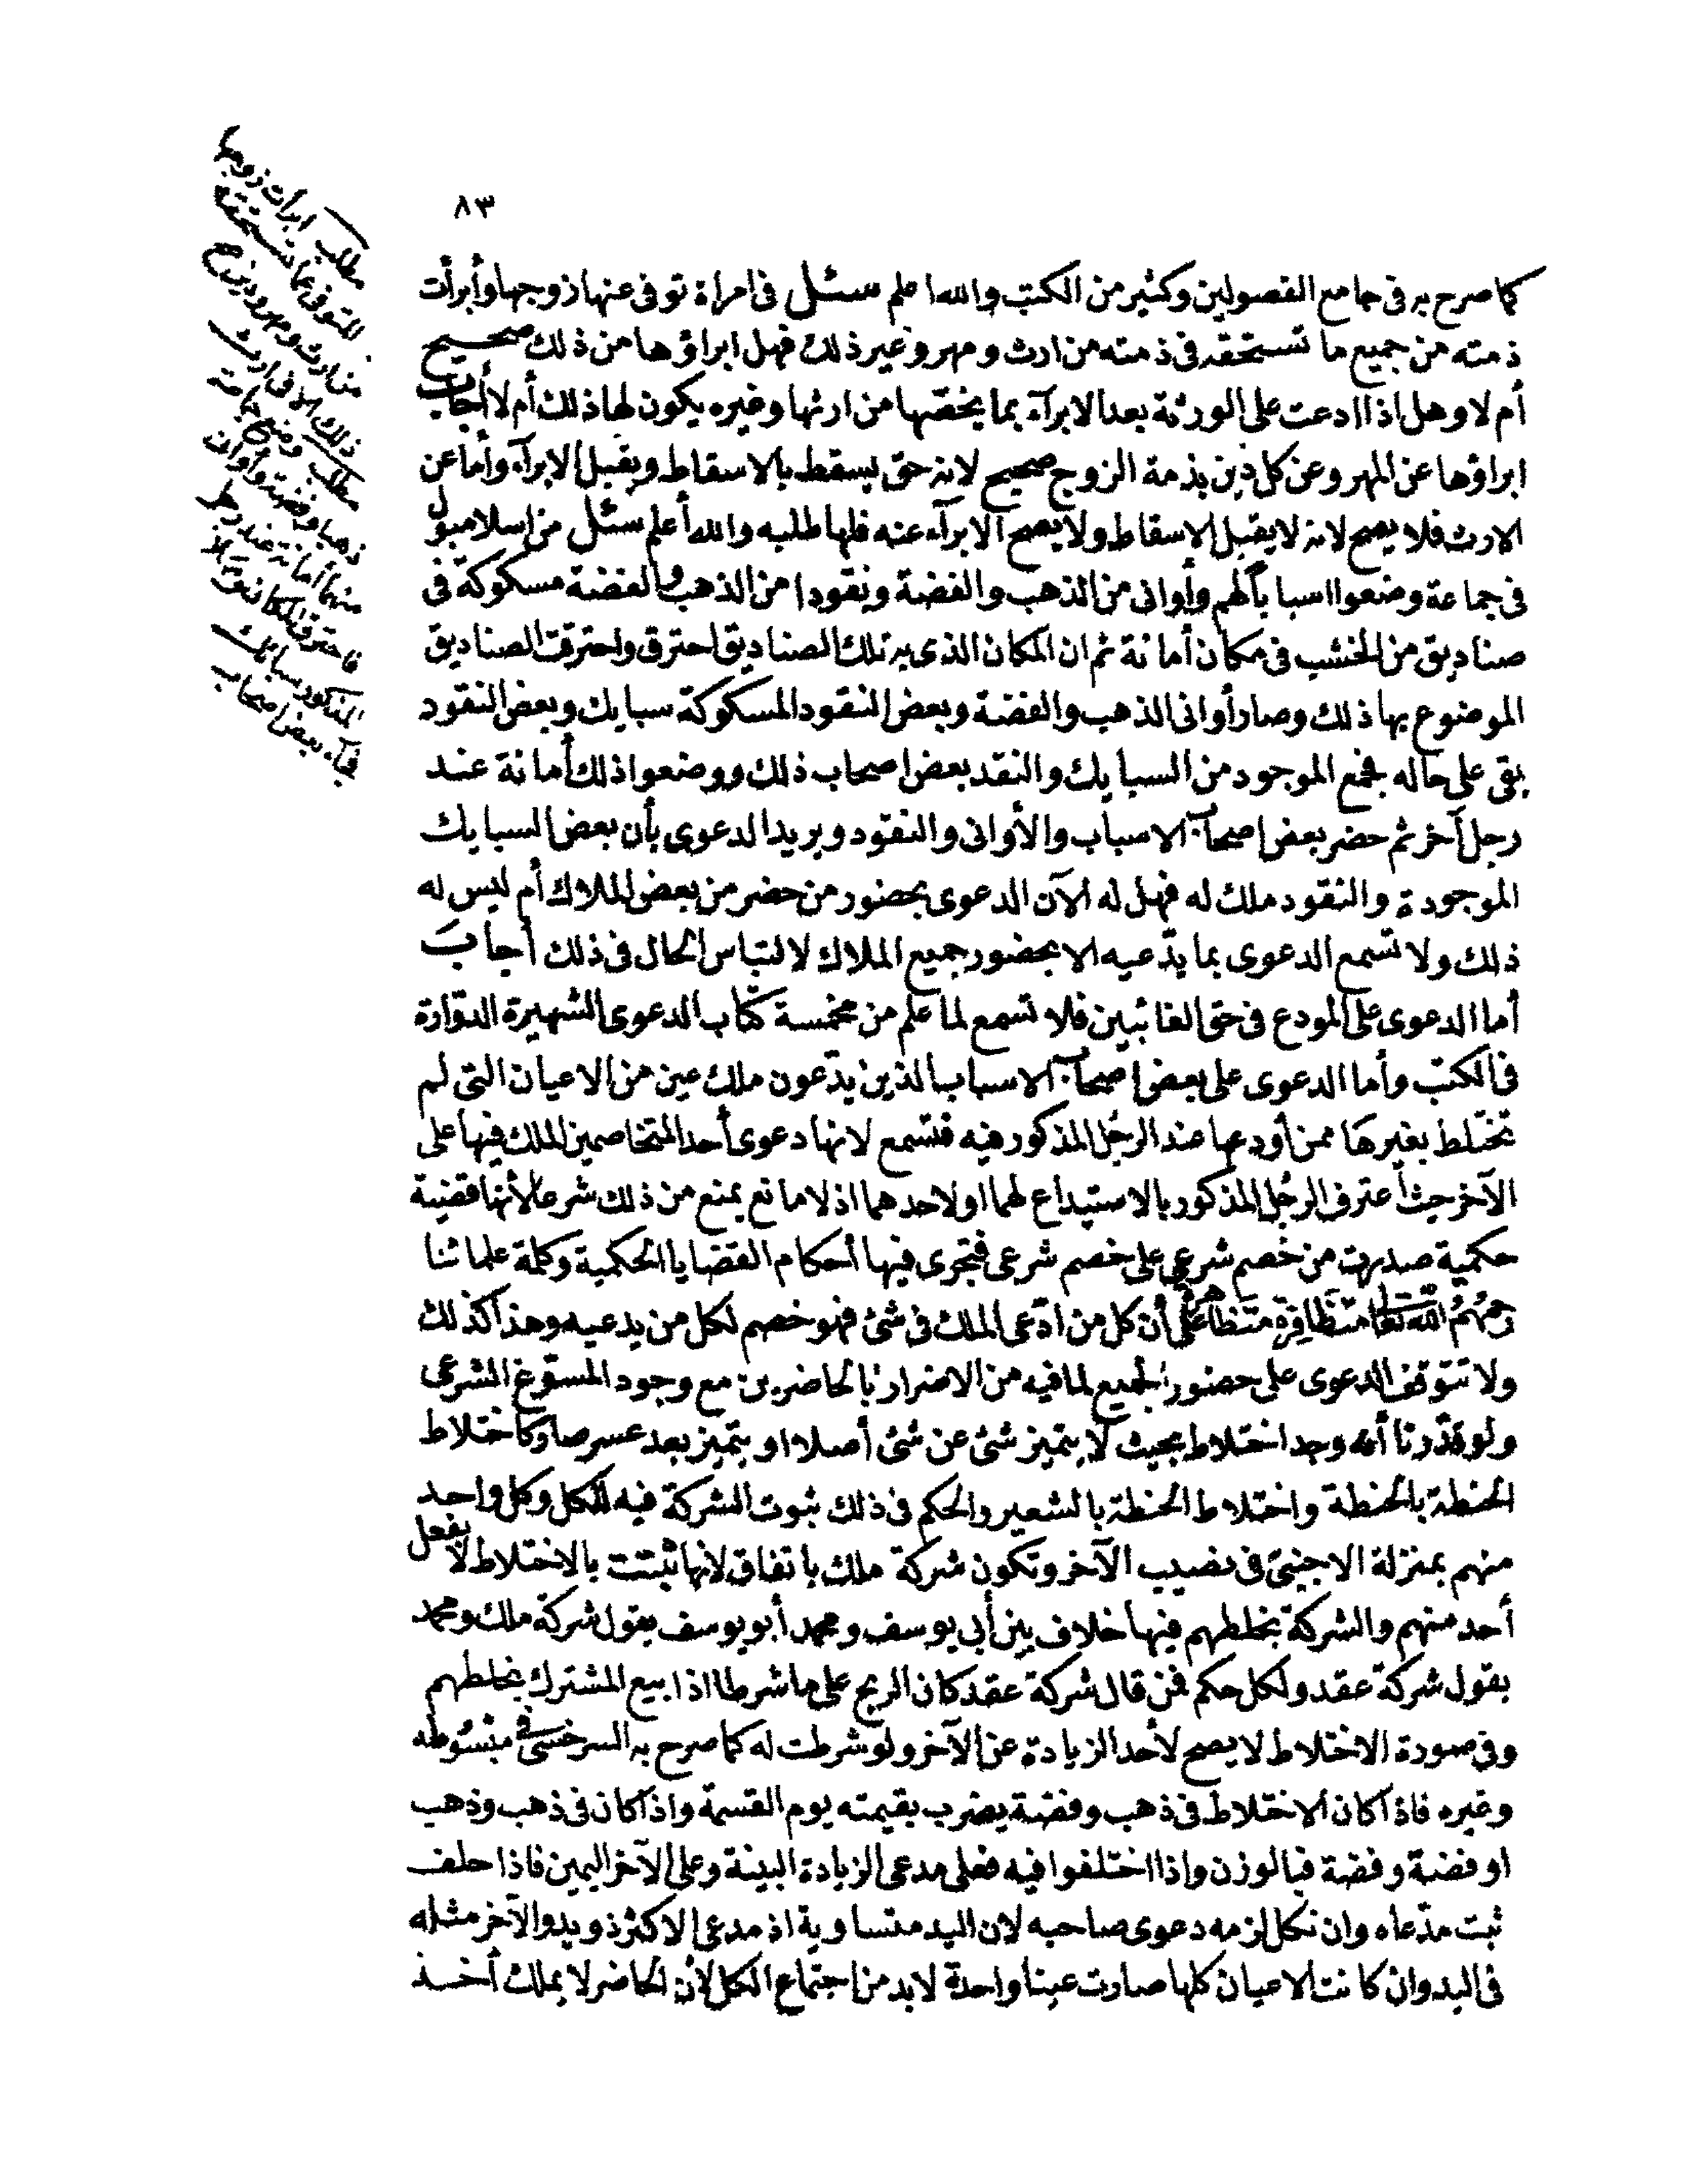 ٨٣
كما صرح به فى جامع الفصولين وكثير من الكتب والله اعلم سئل فى امراة توفى عنها زوجها وأبرأت
ذمته من جميع ما تستحقه فى ذمته من ارث ومهر وغير ذلك فهل ابراؤها من ذلك صحيح
أم لا وهل اذا ادعت على الورثة بعد الابرآء بما يخصها من ارثها وغيره يكون لها ذلك أم لا أجاب
ابراؤها عن المهر وعن كل دين بذمة الزوج صحيح لانه حق يسقط بالاسقاط ويقبل الابرآء وأما عن
الارث فلا يصح لانه لا يقبل الاسقاط ولا يصح الابرآء عنه فلها طلبه والله أعلم سئل من اسلامبول
فى جماعة وضعوا اسبابا لهم وأوانى من الذهب والفضة ونقودا من الذهب والفضة مسكوكة فى
صناديق من الخشب فى مكان أمانة ثم ان المكان الذى به تلك الصناديق احترق واحترقت الصناديق
الموضوع بها ذلك وصار أوانى الذهب والفضة وبعض النقود المسكوكة سبايك وبعض النقود
بقى على حاله فجمع الموجود من السبايك والنقد بعض اصحاب ذلك ووضعوا ذلك أمانة عند
رجل آخر ثم حضر بعض اصحاب الاسباب والأوانى والنقود ويريد الدعوى بأن بعض السبايك
الموجودة والنقود ملك له فهل له الآن الدعوى بحضور من حضر من بعض الملاك أم ليس له
ذلك ولا تسمع الدعوى بما يدّعيه الا بحضور جميع الملاك لالتباس الحال فى ذلك أجابَ
أما الدعوى على المودع فى حق الغائبين فلا تسمع لما علم من مخمسة كتاب الدعوى الشهيرة الدوّارة
فى الكتب وأما الدعوى على بعض اصحاب الاسباب الذين يدّعون ملك عين من الاعيان التى لم
تختلط بغيرها ممن أودعها عند الرجُل المذكور فيه فتسمع لانها دعوى أحد المتخاصمين الملك فيها على
الآخر حيث أعترف الرجُل المذكور بالاستيداع لهما او لاحدهما اذ لا مانع يمنع من ذلك شرعا لأنها قضية
حكمية صدرت من خصم شرعى على خصم شرعى فتجرى فيها أحكام القضايا الحكمية وكلمة علمائنا
رحمهُمُ اللّه تعالى متظافِرة متظاهرة على أن كل من ادّعى الملك فى شئ فهو خصم لكل من يدعيه وهذا كذلك
ولا تتوقف الدعوى على حضور الجميع لما فيه من الاضرار بالحاضرين مع وجود المسوّغ الشرعى
ولو قدّرنا أنه وجد اختلاط بحيث لا يتميز شئ عن شئ أصلا او يتميز بعد عسر صار كاختلاط
الحنطة بالحنطة واختلاط الحنطة بالشعير والحكم فى ذلك ثبوت الشركة فيه للكل وكل واحد
منهم بمنزلة الاجنبىّ فى نصيب الآخر وتكون شركة ملك باتفاق لانها ثبتت بالاختلاط لا بفعل
أحد منهم والشركة بخلطهم فيها خلاف بين أبي يوسف ومحمد أبو يوسف يقول شركة ملك ومحمد
يقول شركة عقد ولكل حكم فمن قال شركة عقد كان الربح على ما شرطا اذا بيع المشترك بخلطهم
وفى صورة الاختلاط لا يصح لأحد الزيادة عن الآخر ولو شرطت له كما صرح به السرخسى فى مبسُوطه
وغيره فاذا كان الاختلاط فى ذهب وفضة يضرب بقيمته يوم القسمة واذا كان فى ذهب وذهب
او فضة وفضة فبالوزن واذا اختلفوا فيه فعلى مدعى الزيادة البينة وعلى الآخر اليمين فاذا حلف
ثبت مدّعاه وان نكل لزمه دعوى صاحبه لان اليد متساوية اذ مدعى الاكثر ذو يد والآخر مثله
فى اليد وان كانت الاعيان كلها صارت عينا واحدة لا بد من اجتماع الكل لأن الحاضر لا يملك أخذ
مطلب ابرأت زوجها
المتوفى عما تستحقه
من ارث ومهر ودين صح
ذلك الا فى ارث
مطلب وضع جماعة
ذهبا وفضة وأوان
منهما أمانة عند رجل
فاحترق المكان
المذكور سبائك
فجآء بعض اصحاب